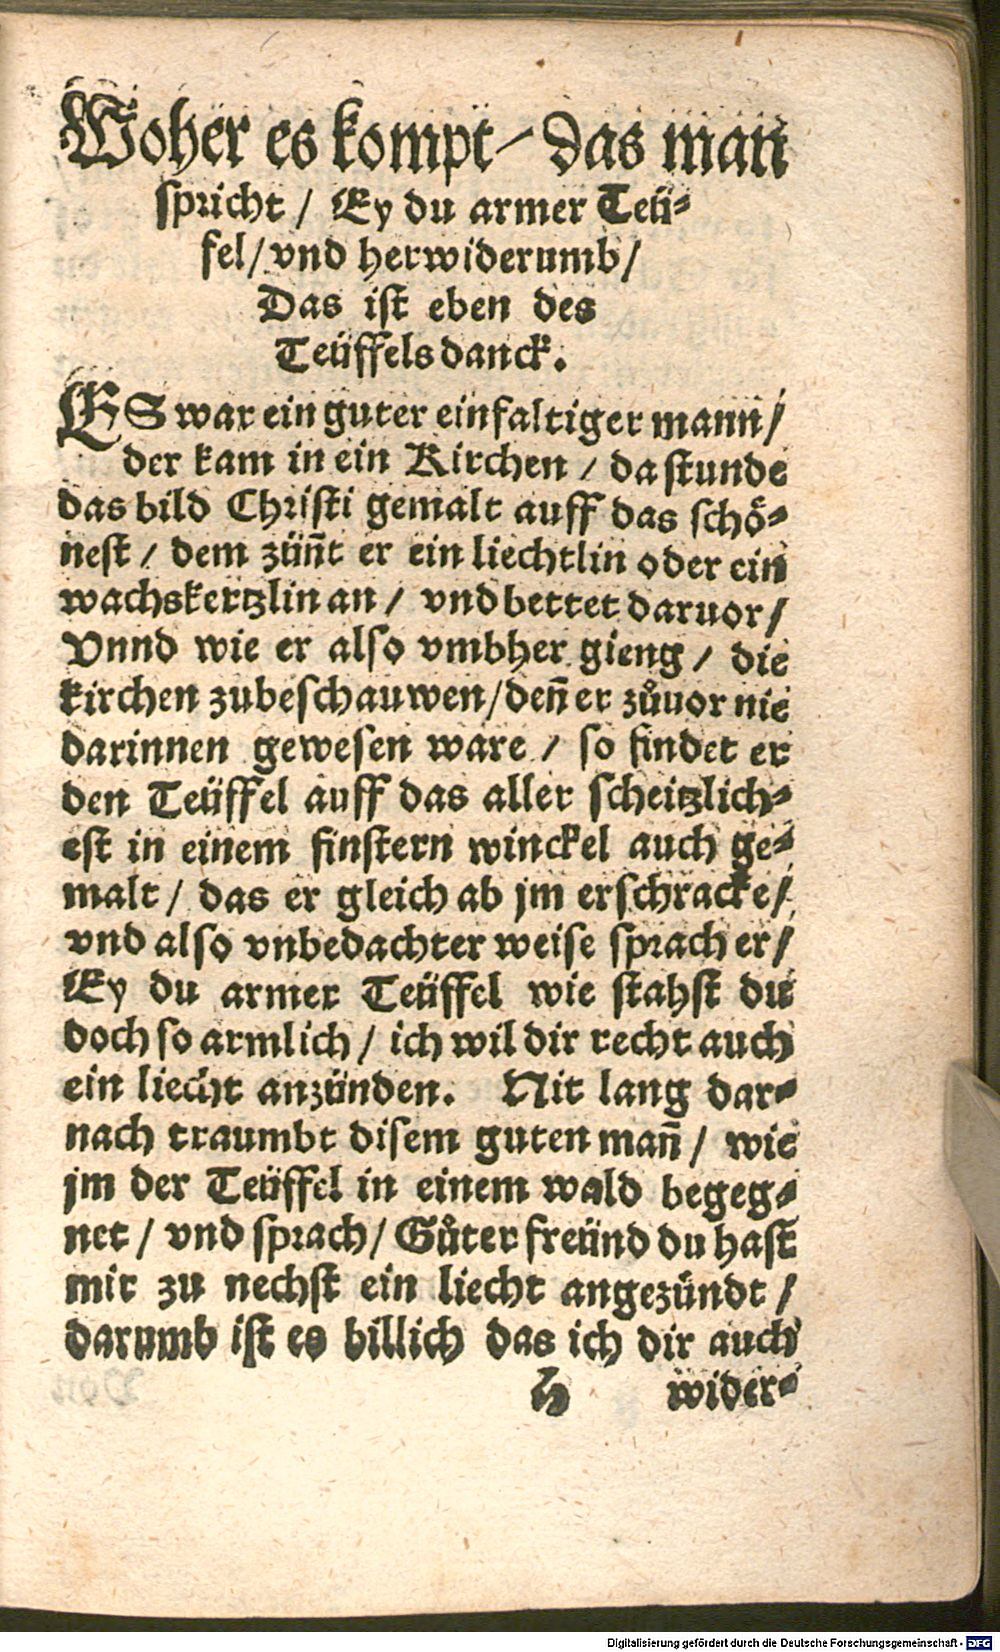 Woher es kompt / das man
spricht / Ey du armer Teü-
fel / vnd herwiderumb /
Das ist eben des
Teüffels danck.
ES war ein guter einfaltiger mann /
der kam in ein Kirchen / da stunde
das bild Christi gemalt auff das schö-
nest / dem zün̄t er ein liechtlin oder ein
wachskertzlin an / vnd bettet daruor /
Vnnd wie er also vmbher gieng / die
kirchen zubeschauwen / den̄ er zůuor nie
darinnen gewesen ware / so findet er
den Teüffel auff das aller scheitzlich-
est in einem finstern winckel auch ge-
malt / das er gleich ab jm erschracke /
vnd also vnbedachter weise sprach er /
Ey du armer Teüffel wie stahst du
doch so armlich / ich wil dir recht auch
ein liecht anzünden. Nit lang dar-
nach traumbt disem guten man̄ / wie
jm der Teüffel in einem wald begeg-
net / vnd sprach / Gůter freünd du hast
mir zu nechst ein liecht angezündt /
darumb ist es billich das ich dir auch
H wider-
Digitalisierung gefördert durch die Deutsche Forschungsgemeinschaft - DFG